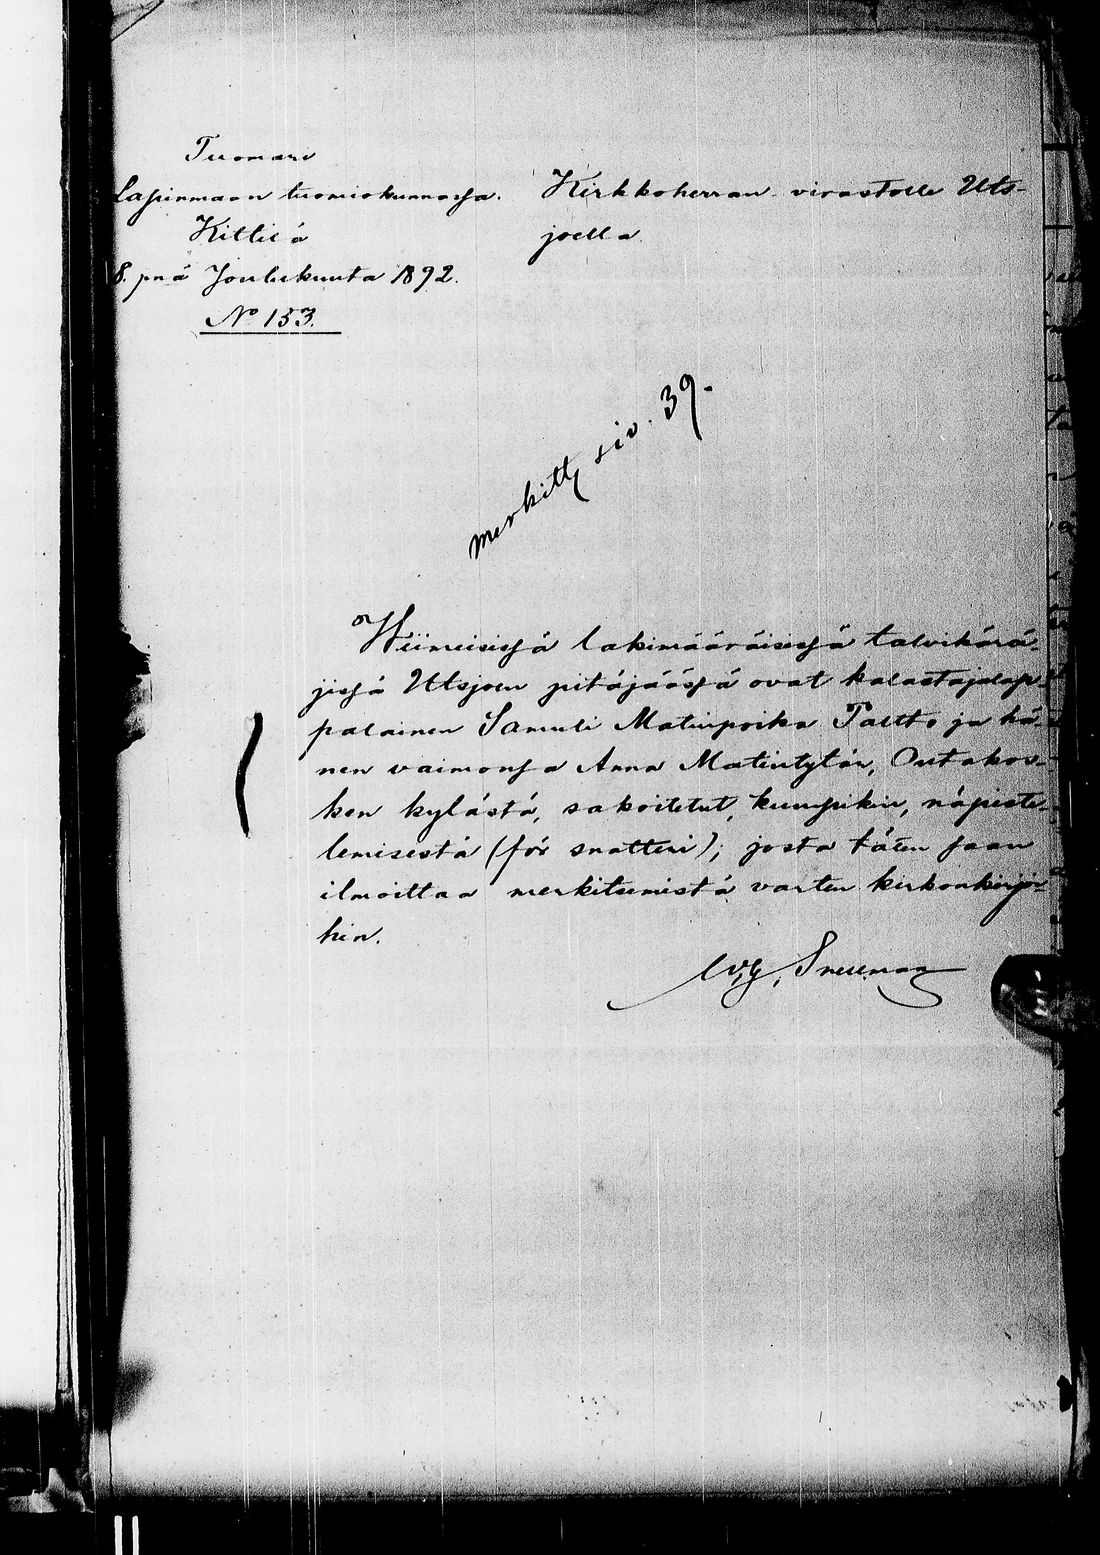 Tuomari
Lapinmaan tuomiokunnassa.
Kittilä
8. pnä Joulukuuta 1892.
No 153.
Kirkkoherran virastolle Uts-
joella.
merkitty siv. 39.
Wiimeisissä lakimääräisissä talvikärä-
jissä Utsjoen pitäjäässä ovat kalastajalap-
palainen Samuli Matinpoika Paltto ja hä-
nen vaimonsa Anna Matintytär, Outakos-
ken kylästä, sakoitetut, kumpikin, näpiste-
lemisestä (för snatteri); josta täten saan
ilmoittaa merkitsemistä varten kirkonkirjoi-
hin.
Snellman